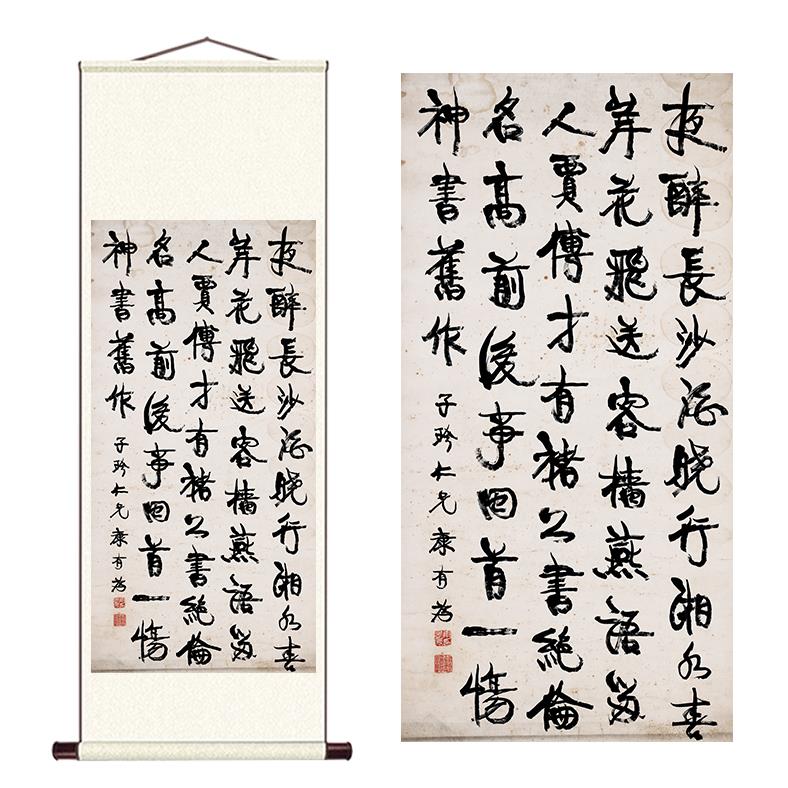 夜醉長沙酒曉行湘水春
岸花飛送客檣燕語留
人賈傅才有褚公書絕倫
名高前後事回首一傷
神書舊作 子仁兄 康有為
夜醉長沙酒曉行湘水春
岸花飛送客檣燕語留
人賈傅才有褚公書絕倫
名高前後事回首一傷
神書舊作 子仁兄 康有為